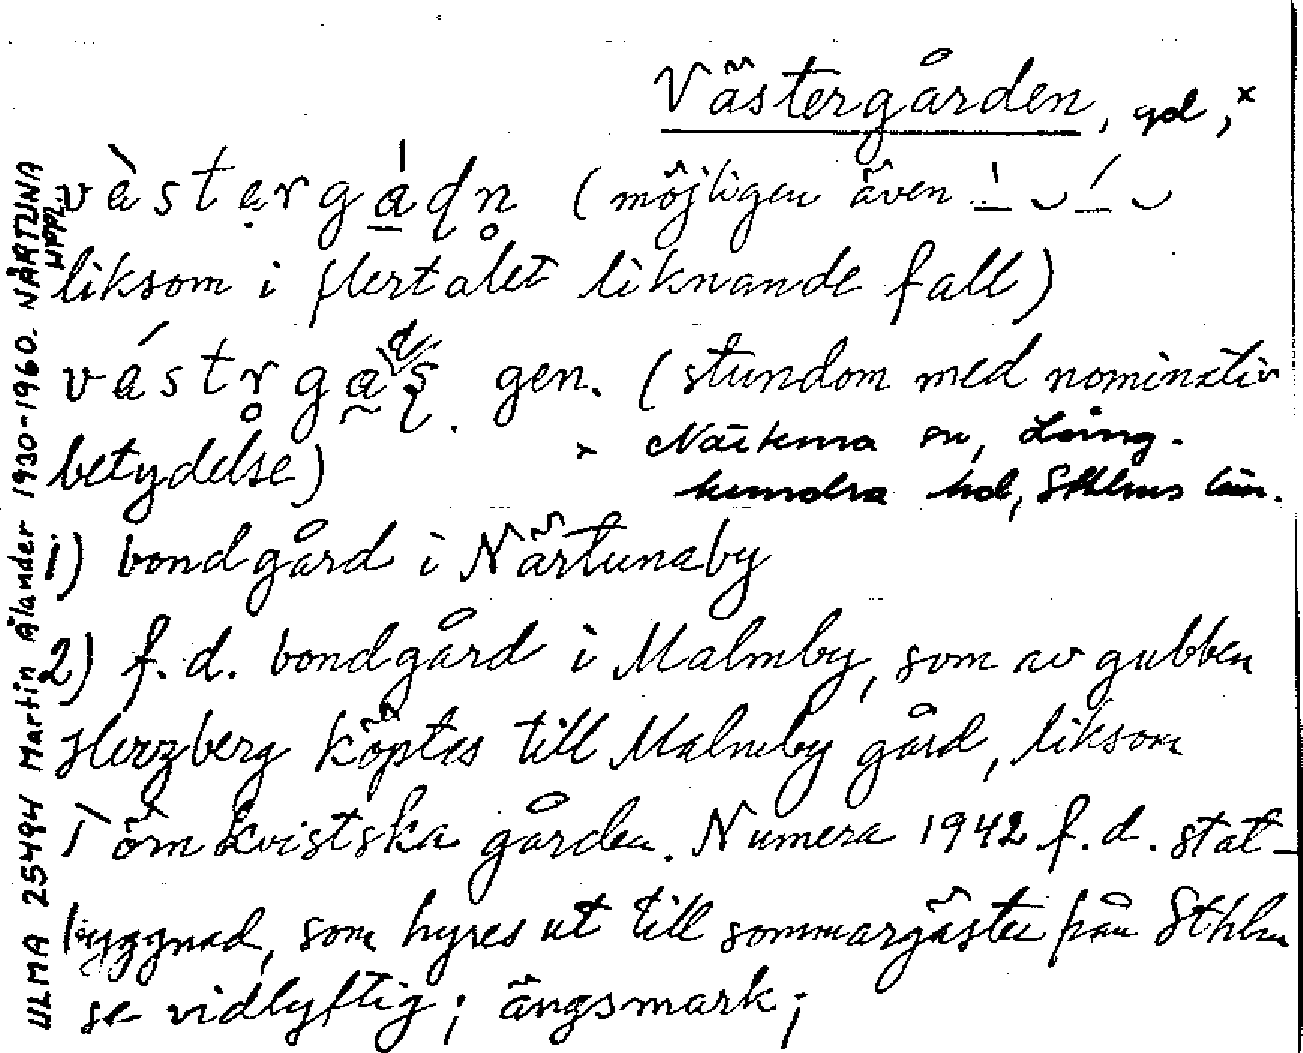 Västergården, gd, x
vàstẹrgá̱ḍn̥ (möjligen även
liksom i flertalet liknande fall)
vástr̥ga̰ḍṣ gen. (stundom med nominativ
betydelse)
x Närtuna sn, Lång-
hundra hd, Sthlms län.
1) bondgård i Närtunaby
2) f.d. bondgård i Malmby, som av gubben
Herzberg köptes till Malmby gård, liksom
Törnkvistska gården. Numera 1942 f.d. stat-
byggnad, som hyres ut till sommargäster från Sthlm
se vidlyftig; ängsmark;
ULMA 25494 Martin Ålander 1930-1960. NÄRTUNA
UPPL.